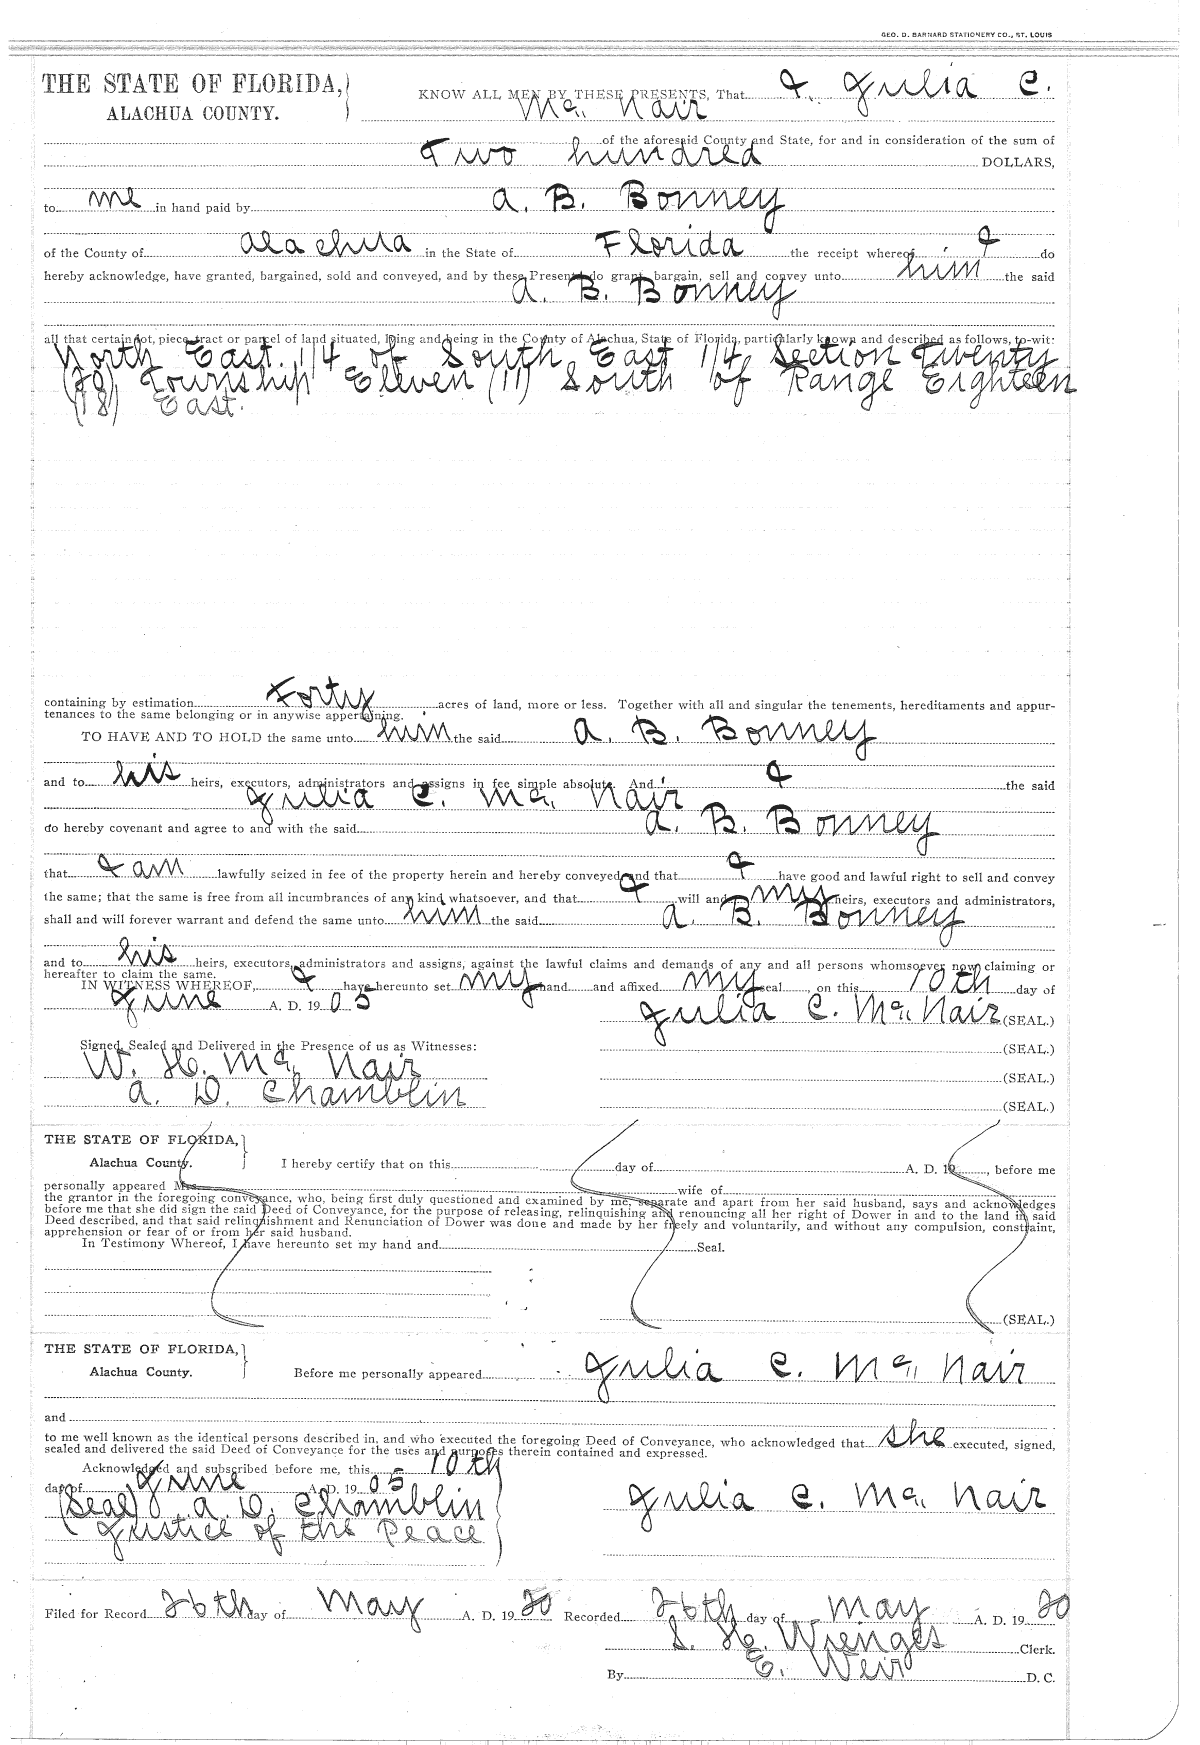 GEO. D. BARNARD STATIONERY CO., ST. LOUIS
THE STATE OF FLORIDA,
ALACHUA COUNTY.
KNOW ALL MEN BY THESE PRESENTS, That I, Julia C.
Mc. Nair
of the aforesaid County and State, for and in consideration of the sum of
Two hundred DOLLARS,
to me in hand paid by A. B. Bonney
of the County of Alachua in the State of Florida the receipt whereof I do
hereby acknowledge, have granted, bargained, sold and conveyed, and by these Presents do grant, bargain, sell and convey unto him the said
A. B. Bonney
all that certain lot, piece, tract or parcel of land situated, lying and being in the County of Alachua, State of Florida, particularly known and described as follows, to-wit:
North East 1/4 of South East 1/4 Section Twenty
Township Eleven (11) South of Range Eighteen
(18) East.
containing by estimation Forty acres of land, more or less. Together with all and singular the tenements, hereditaments and appur-
tenances to the same belonging or in anywise appertaining.
TO HAVE AND TO HOLD the same unto him the said A. B. Bonney
and to his heirs, executors, administrators and assigns in fee simple absolute. And I the said
Julia C. Mc. Nair
do hereby covenant and agree to and with the said A. B. Bonney
that I am lawfully seized in fee of the property herein and hereby conveyed and that I have good and lawful right to sell and convey
the same; that the same is free from all incumbrances of any kind whatsoever, and that I will and my heirs, executors and administrators,
shall and will forever warrant and defend the same unto him the said A. B. Bonney
and to his heirs, executors, administrators and assigns, against the lawful claims and demands of any and all persons whomsoever now claiming or
hereafter to claim the same.
IN WITNESS WHEREOF, I have hereunto set my hand and affixed my seal, on this 10th day of
June A. D. 1905
Julia C. Mc. Nair (SEAL.)
Signed, Sealed and Delivered in the Presence of us as Witnesses:
(SEAL.)
W. H. Mc. Nair
(SEAL.)
A. D. Chamblin
(SEAL.)
THE STATE OF FLORIDA,
Alachua County.
I hereby certify that on this day of A. D. 19 , before me
personally appeared Mrs. wife of
the grantor in the foregoing conveyance, who, being first duly questioned and examined by me, separate and apart from her said husband, says and acknowledges
before me that she did sign the said Deed of Conveyance, for the purpose of releasing, relinquishing and renouncing all her right of Dower in and to the land in said
Deed described, and that said relinquishment and Renunciation of Dower was done and made by her freely and voluntarily, and without any compulsion, constraint,
apprehension or fear of or from her said husband.
In Testimony Whereof, I have hereunto set my hand and Seal.
(SEAL.)
THE STATE OF FLORIDA,
Alachua County.
Before me personally appeared Julia C. Mc. Nair
and
to me well known as the identical persons described in, and who executed the foregoing Deed of Conveyance, who acknowledged that she executed, signed,
sealed and delivered the said Deed of Conveyance for the uses and purposes therein contained and expressed.
Acknowledged and subscribed before me, this 10th
day of June A. D. 1905
(Seal) A. D. Chamblin
Julia C. Mc. Nair
Justice of the Peace
Filed for Record 26th day of May A. D. 1920 Recorded 26th day of May A. D. 1920
S. H. Wienges Clerk.
By E. Weir D. C.